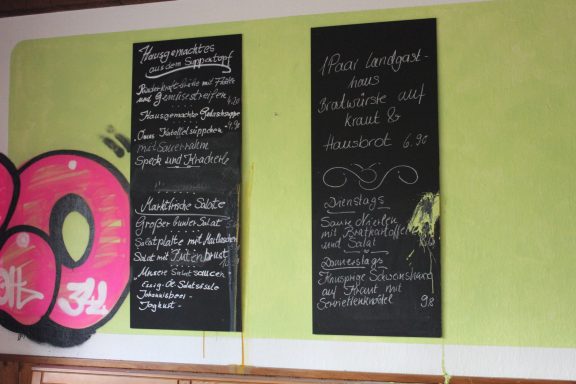 Hausgemachtes
aus dem Suppentopf
Rinderkraftbrühe mit
und Gemüsestreifen 4.20
Hausgemachte Gulaschsuppe
4.90
Omas Kartoffelsüppchen
mit Sauerrahm
Speck und Kracherle
Marktfrische Salate
Großer bunter Salat
Salatplatte mit
Salat mit Putenbrust
Unsere Salatsaucen
Essig-Öl Salatsoße
Johannisbeer-
Joghurt-
1 Paar Landgast-
haus
Bratwürste auf
Kraut &
Hausbrot 6.90
Dienstags
Saure Nierlen
mit Bratkartoffel
und Salat
Donnerstags
Knusprige
auf Kraut mit
Serviettenknödel 9.